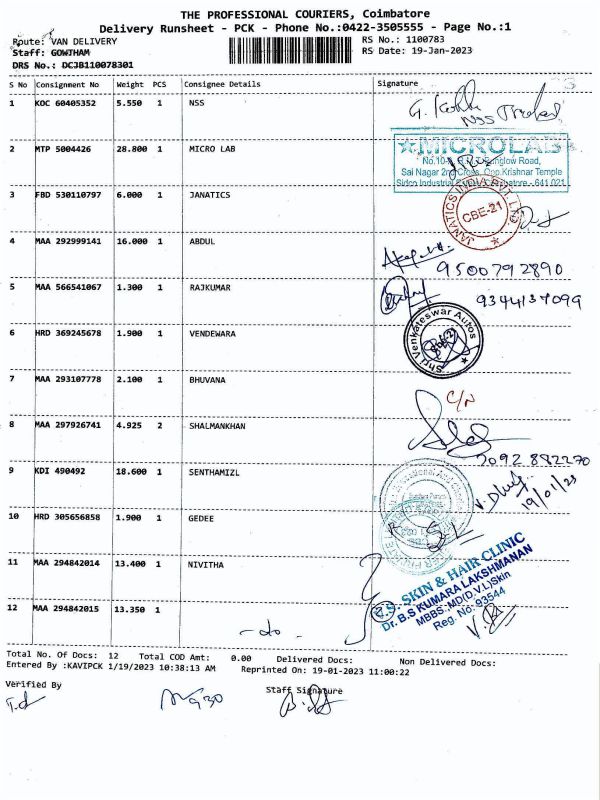 THE PROFESSIONAL COURIERS, Coimbatore
Delivery Runsheet - PCK - Phone No.:0422-3505555 - Page No.:1
Route: VAN DELIVERY RS No.: 1100783
Staff: GOWTHAM RS Date: 19-Jan-2023
DRS No.: DCJB110078301
S No Consignment No Weight PCS Consignee Details Signature
1 KOC 60405352 5.550 1 NSS
NSS
2 MTP 5004426 28.800 1 MICRO LAB
MICROLAB
Sai Nagar 2nd Cross, Opp.Krishnar Temple
Sidco Industrial
3 FBD 530110797 6.000 1 JANATICS
JANATICS INDIA PVT. LTD.
CBE-21
4 MAA 292999141 16.000 1 ABDUL
9500792890
5 MAA 566541067 1.300 1 RAJKUMAR
9344137099
6 HRD 369245678 1.900 1 VENDEWARA
Shri Venkateswar Autos
7 MAA 293107778 2.100 1 BHUVANA
C/N
8 MAA 297926741 4.925 2 SHALMANKHAN
9 KDI 490492 18.600 1 SENTHAMIZL
19/01/23
10 HRD 305656858 1.900 1 GEDEE
11 MAA 294842014 13.400 1 NIVITHA
SKIN & HAIR CLINIC
Dr. B.S KUMARA LAKSHMANAN
MBBS.,MD(D.V.L)Skin
Reg. No: 93544
12 MAA 294842015 13.350 1
-do-
Total No. Of Docs: 12 Total COD Amt: 0.00 Delivered Docs: Non Delivered Docs:
Entered By :KAVIPCK 1/19/2023 10:38:13 AM Reprinted On: 19-01-2023 11:00:22
Verified By Staff Signature